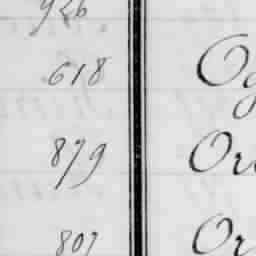 926
618 Og
879 Or
807 Or